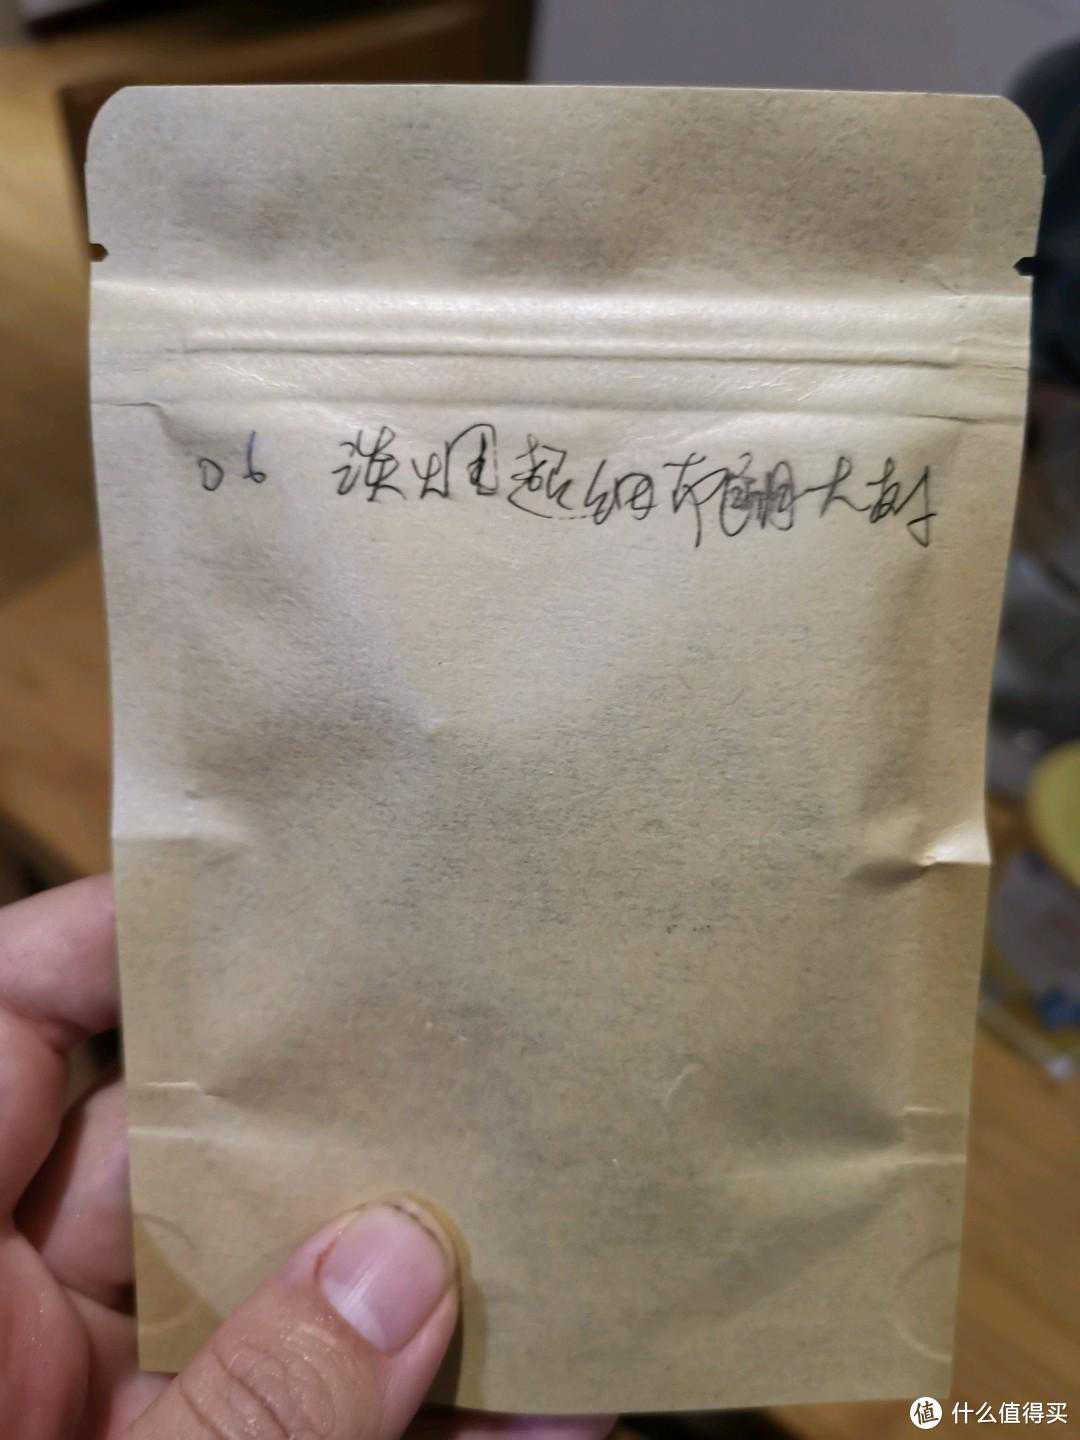 06 淡烟 细布朗大树
值 什么值得买